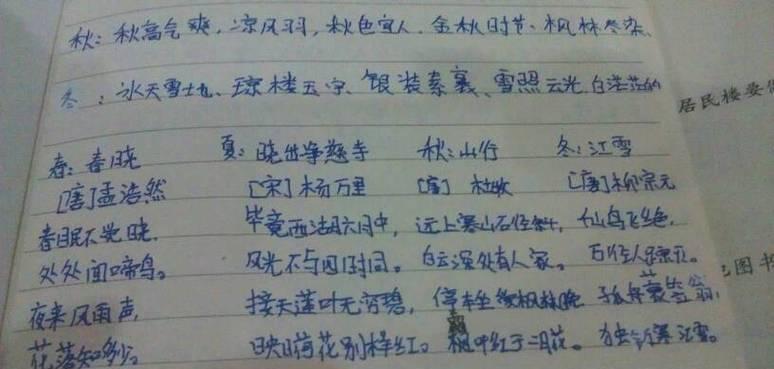 秋：秋高气爽、凉风习习、秋色宜人、金秋时节、枫林尽染、
冬：冰天雪地、琼楼玉宇、银装素裹、雪照云光、白茫茫的
春：春晓 夏：晓出净慈寺 秋：山行 冬：江雪
[唐]孟浩然 [宋]杨万里 [唐]杜牧 [唐]柳宗元
春眠不觉晓, 毕竟西湖六月中, 远上寒山石径斜, 千山鸟飞绝,
处处闻啼鸟。 风光不与四时同。 白云深处有人家。 万径人踪灭。
夜来风雨声, 接天莲叶无穷碧, 停车坐爱枫林晚 孤舟蓑笠翁,
花落知多少。 映日荷花别样红。 霜叶红于二月花。 独钓寒江雪。
居民楼要
图书